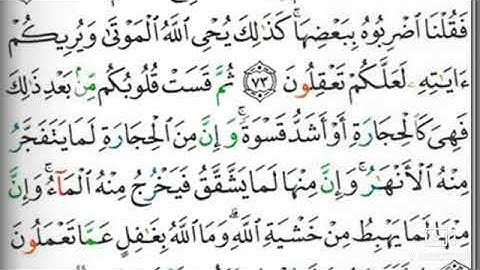 فَقُلْنَا اضْرِبُوهُ بِبَعْضِهَا ۚ كَذَٰلِكَ يُحْيِ اللَّهُ الْمَوْتَىٰ وَيُرِيكُمْ
ءَايَٰتِهِ لَعَلَّكُمْ تَعْقِلُونَ ﴿٧٣﴾ ثُمَّ قَسَتْ قُلُوبُكُم مِّن بَعْدِ ذَٰلِكَ
فَهِيَ كَالْحِجَارَةِ أَوْ أَشَدُّ قَسْوَةً ۚ وَإِنَّ مِنَ الْحِجَارَةِ لَمَا يَتَفَجَّرُ
مِنْهُ الْأَنْهَٰرُ ۚ وَإِنَّ مِنْهَا لَمَا يَشَّقَّقُ فَيَخْرُجُ مِنْهُ الْمَآءُ ۚ وَإِنَّ
مِنْهَا لَمَا يَهْبِطُ مِنْ خَشْيَةِ اللَّهِ ۗ وَمَا اللَّهُ بِغَٰفِلٍ عَمَّا تَعْمَلُونَ